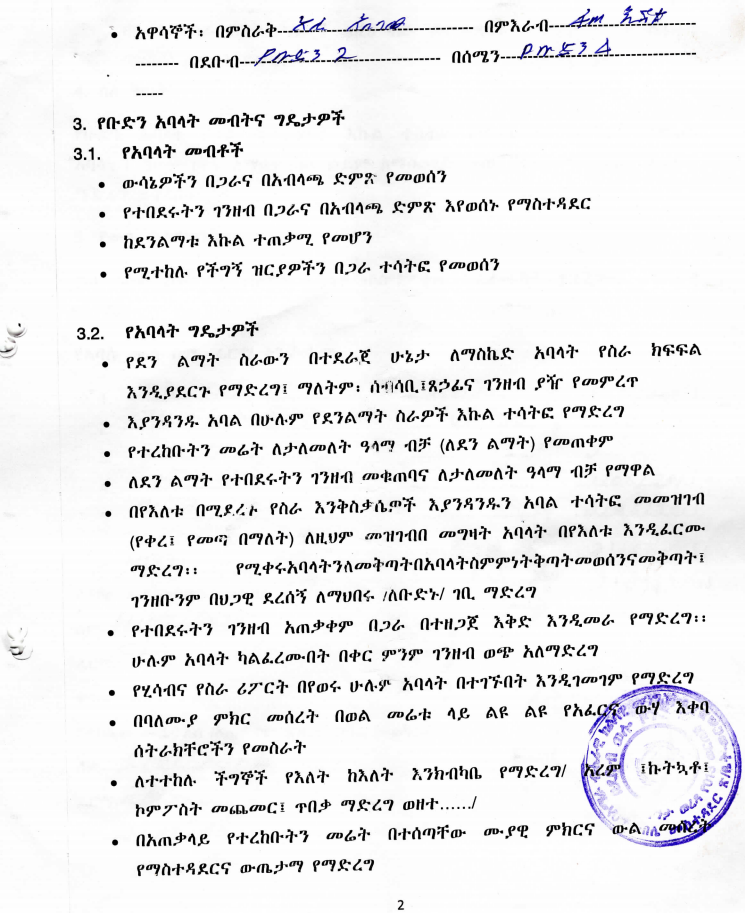 • አዋሳኞች፡ በምስራቅ------ በምእራብ------
-------- በደቡብ------ በሰሜን------
-----
3. የቡድን አባላት መብትና ግዴታዎች
3.1. የአባላት መብቶች
• ውሳኔዎችን በጋራና በአብላጫ ድምጽ የመወሰን
• የተበደሩትን ገንዘብ በጋራና በአብላጫ ድምጽ እየወሰኑ የማስተዳደር
• ከደንልማቱ እኩል ተጠቃሚ የመሆን
• የሚተከሉ የችግኝ ዝርያዎችን በጋራ ተሳትፎ የመወሰን
3.2. የአባላት ግዴታዎች
• የደን ልማት ስራውን በተደራጀ ሁኔታ ለማስኬድ አባላት የስራ ክፍፍል
እንዲያደርጉ የማድረግ፤ ማለትም፡ ሰብሳቢ፤ጸኃፊና ገንዘብ ያዥ የመምረጥ
• እያንዳንዱ አባል በሁሉም የደንልማት ስራዎች እኩል ተሳትፎ የማድረግ
• የተረከቡትን መሬት ለታለመለት ዓላማ ብቻ (ለደን ልማት) የመጠቀም
• ለደን ልማት የተበደሩትን ገንዘብ መቁጠባና ለታለመለት ዓላማ ብቻ የማዋል
• በየእለቱ በሚደረጉ የስራ እንቅስቃሴዎች እያንዳንዱን አባል ተሳትፎ መመዝገብ
(የቀረ፤ የመጣ በማለት) ለዚህም መዝገብበ መግዛት አባላት በየእለቱ እንዲፈርሙ
ማድረግ፡፡ የሚቀሩአባላትንለመቅጣትበአባላትስምምነትቅጣትመወሰንናመቅጣት፤
ገንዘቡንም በህጋዊ ደረሰኝ ለማህበሩ /ለቡድኑ/ ገቢ ማድረግ
• የተበደሩትን ገንዘብ አጠቃቀም በጋራ በተዘጋጀ እቅድ እንዲመራ የማድረግ፡፡
ሁሉም አባላት ካልፈረሙበት በቀር ምንም ገንዘብ ወጭ አለማድረግ
• የሂሳብና የስራ ሪፖርት በየወሩ ሁሉም አባላት በተገኙበት እንዲገመገም የማድረግ
• በባለሙያ ምክር መሰረት በወል መሬቱ ላይ ልዩ ልዩ የአፈርና ውሃ እቀባ
ሰትራክቸሮችን የመስራት
• ለተተከሉ ችግኞች የእለት ከእለት እንክብካቤ የማድረግ/ አረም ፤ኩትኳቶ፤
ኮምፖስት መጨመር፤ ጥበቃ ማድረግ ወዘተ....../
• በአጠቃላይ የተረከቡትን መሬት በተሰጣቸው ሙያዊ ምክርና ውል መሰረት
የማስተዳደርና ውጤታማ የማድረግ
2